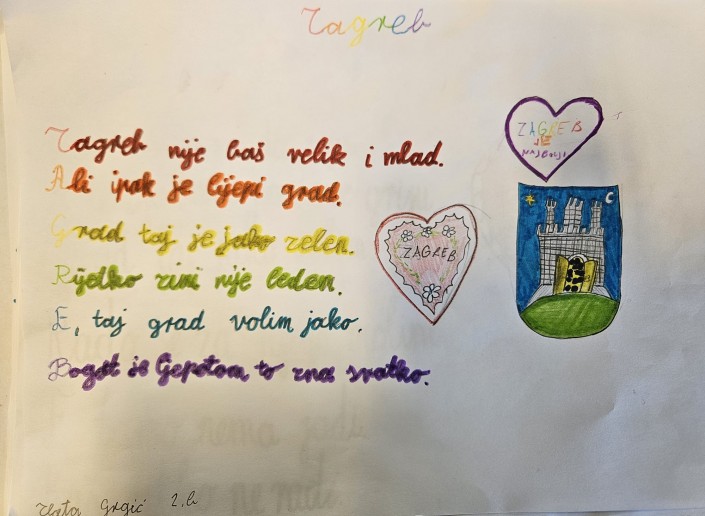 Zagreb
Zagreb nije baš velik i mlad.
Ali ipak je lijepi grad.
Grad taj je jako zelen.
Rijetko zimi nije leden.
E, taj grad volim jako.
Bogat je ljepotom to zna svatko.
ZAGREB
JE
NAJBOLJI
ZAGREB
Grgić 2.b